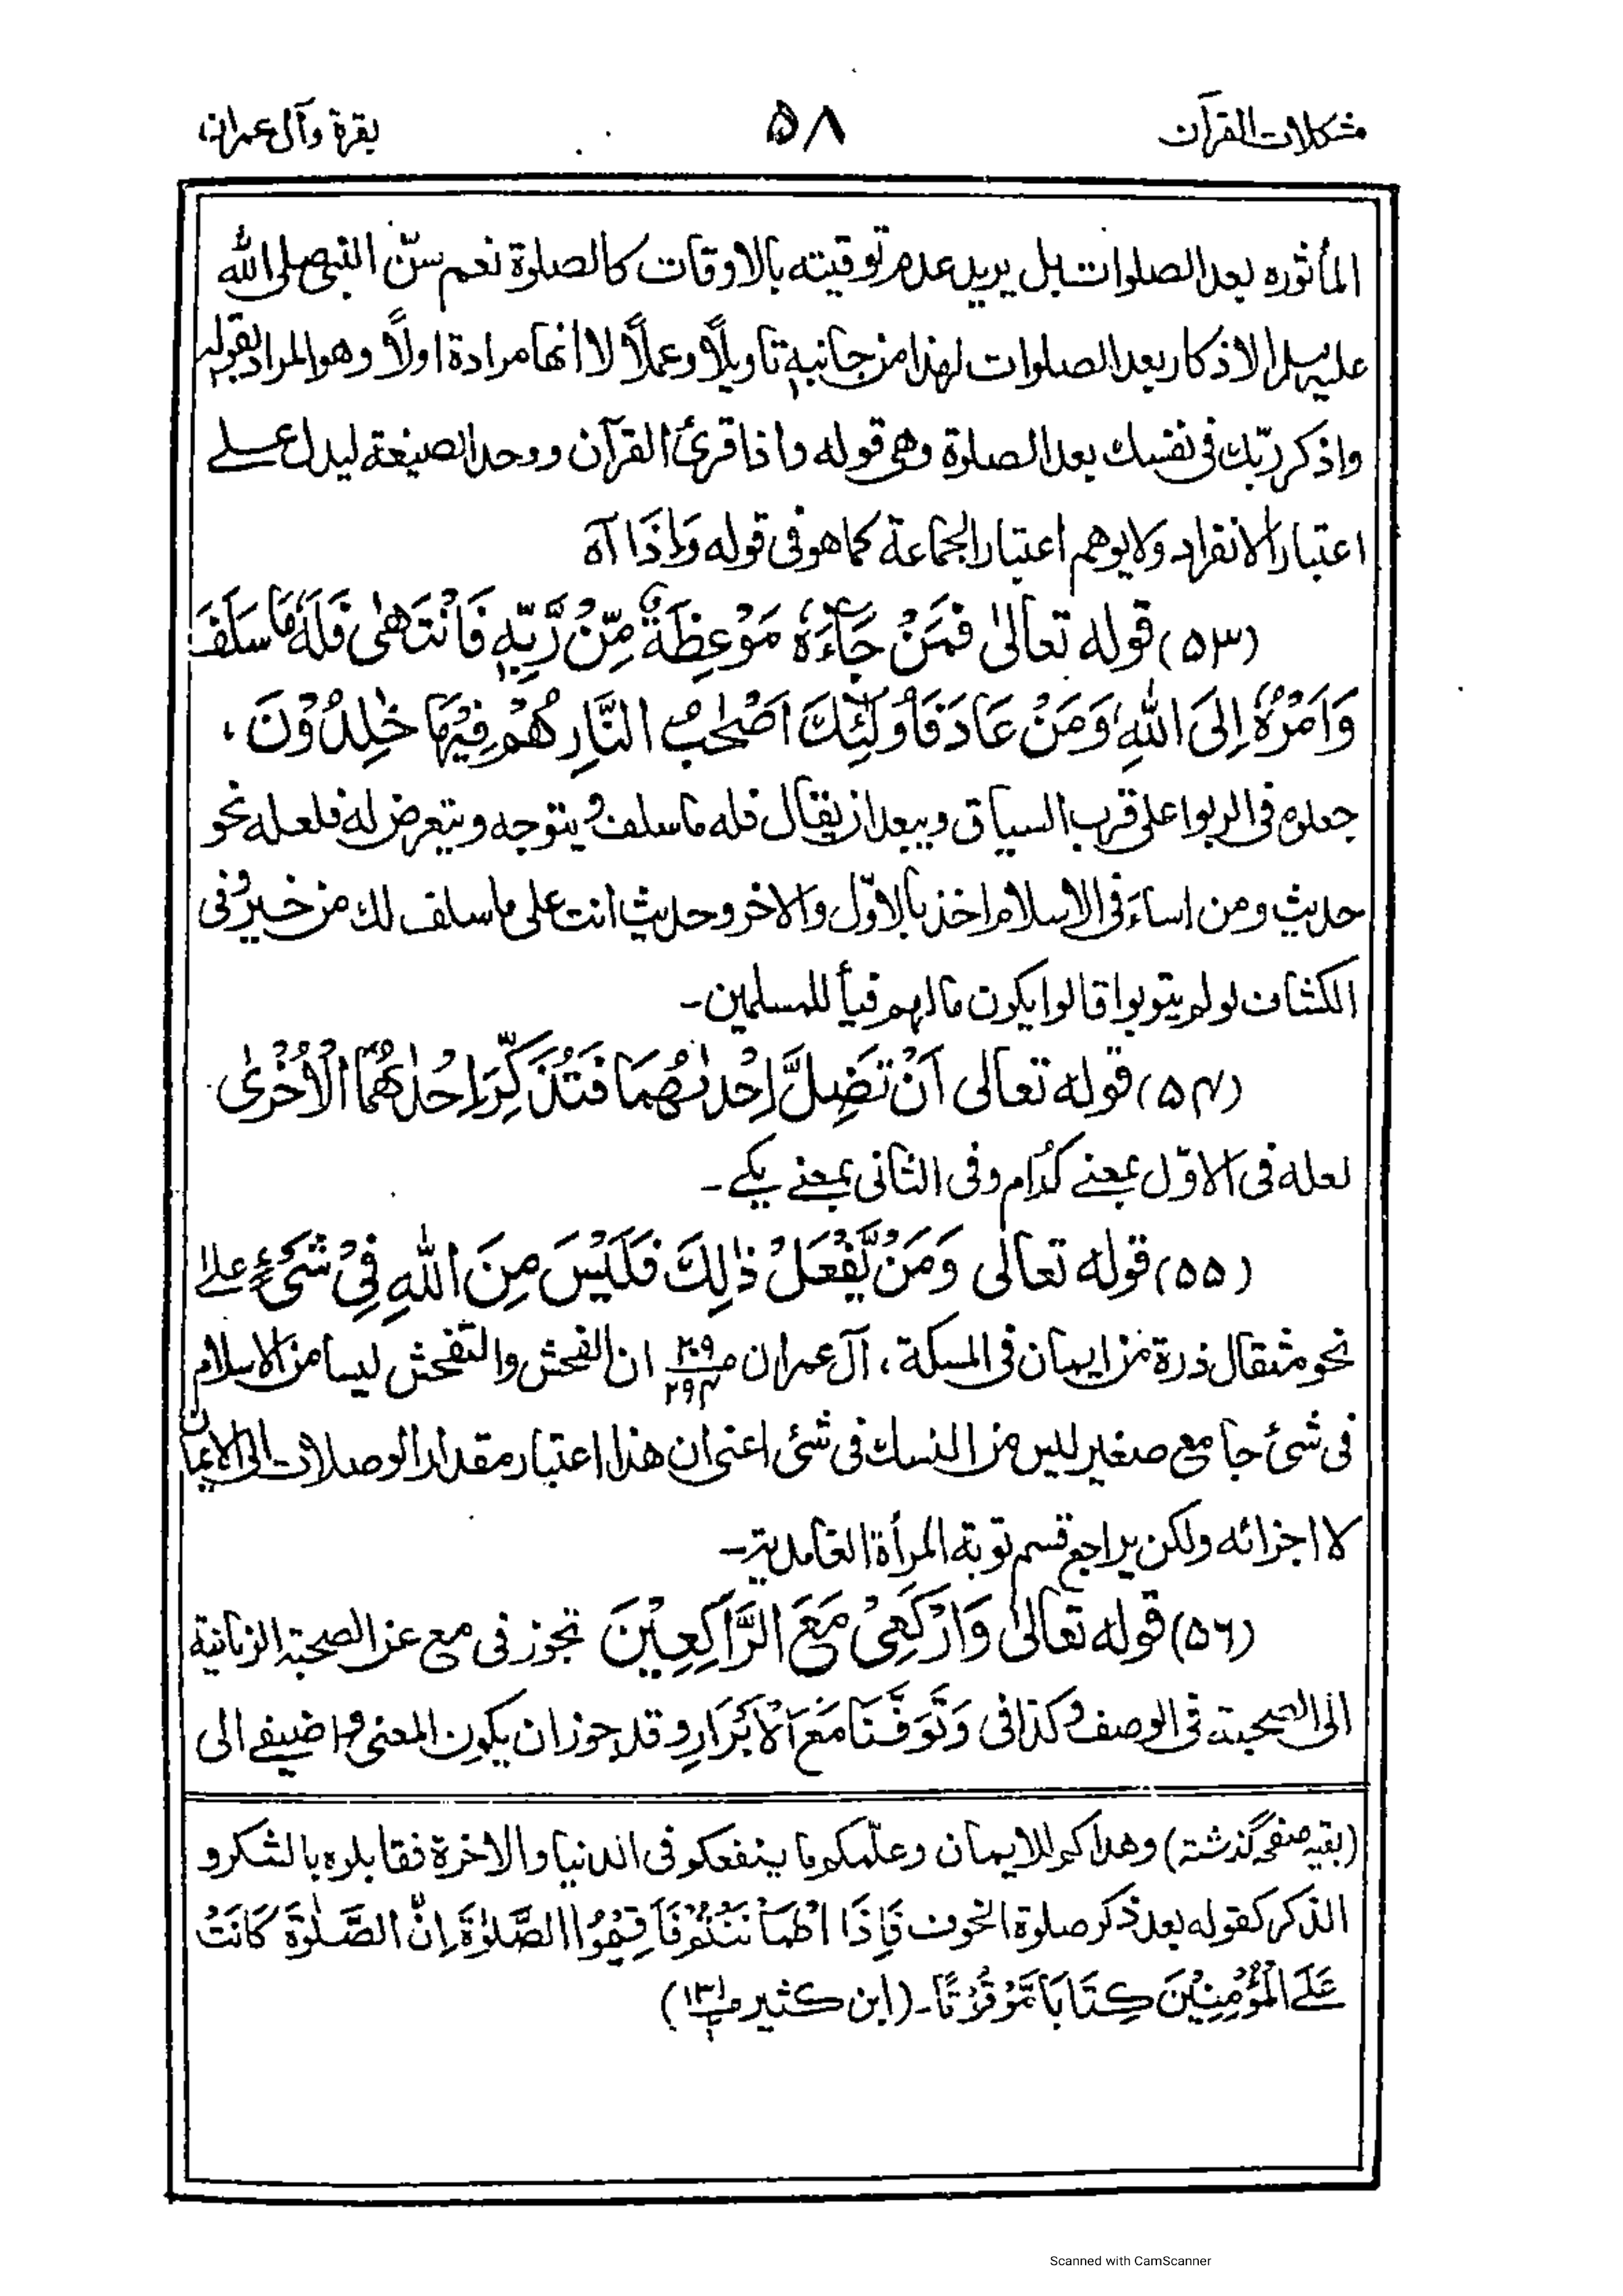 مشكلات القرآن ۵۸ بقرة وآل عمران
المأثوره بعد الصلوات بل يريد عدم توقيته بالاوقات كالصلوة نعم سنّ النبى صلى الله
عليه وسلم الاذكار بعد الصلوات لهذا من جانبه تاويلاً وعملاً لا انها مرادة اولاً وهو المراد بقوله
واذكر ربّك فى نفسك بعد الصلوة وهى قوله واذا قرئ القرآن ووحد الصيغة ليدل على
اعتبار الانفراد ولا يوهم اعتبار الجماعة كما هو فى قوله وَاِذَا آه
(۵۳) قوله تعالىٰ فَمَنْ جَآءَهٗ مَوْعِظَةٌ مِّنْ رَّبِّهٖ فَانْتَهٰى فَلَهٗ مَا سَلَفَ
وَاَمْرُهٗ اِلَى اللّٰهِ وَمَنْ عَادَ فَاُولٰٓئِكَ اَصْحٰبُ النَّارِ هُمْ فِيْهَا خٰلِدُوْنَ ،
جعلوه فى الربوا على قرب السياق ويبعد ان يقال فله ما سلف ويتوجه ويتعرض له فلعله نحو
حديث ومن اساءَ فى الاسلام اخذ بالاوّل والاخر وحديث انت على ما سلف لك من خير وفى
الكشاف لو لم يتوبوا قالوا يكون مالهم فيأ للمسلمين۔
(۵۴) قوله تعالى اَنْ تَضِلَّ اِحْدٰىهُمَا فَتُذَكِّرَ اِحْدٰىهُمَا الْاُخْرٰى
لعله فى الاوّل بمعنے كدام وفى الثانى بمعنے يكے۔
(۵۵) قوله تعالٰى وَمَنْ يَّفْعَلْ ذٰلِكَ فَلَيْسَ مِنَ اللّٰهِ فِىْ شَىْءٍ علىٰ
نحو مثقال ذرة من ايمان فى المسكة ، آل عمران ص ٢٠٩ ٢٩٤ ان الفحش والتفحش ليسا من الاسلام
فى شئ جامع صغير ليس من النسك فى شئ اعنى ان هذا اعتبار مقدار الوصلات الى الايمان
لا اجزائه ولكن يراجع قسم توبة المرأة الغامدية۔
(۵٦) قوله تعالىٰ وَارْكَعِىْ مَعَ الرَّاكِعِيْنَ تجوز فى مع عن الصحبة الزمانية
الى الصحبته فى الوصف وكذا فى وَتَوَفَّنَا مَعَ الْاَبْرَارِ وقد جوز ان يكون المعنى واضيفے الى
(بقيه صفحہ گذشتہ) وهداكم للايمان وعلّمكم ما ينفعكم فى الدنيا والاخرة فقابلوه بالشكر و
الذكر كقوله بعد ذكر صلوة الخوف فَاِذَا اطْمَاْنَنْتُمْ فَاَقِيْمُوا الصَّلٰوةَ اِنَّ الصَّلٰوةَ كَانَتْ
عَلَے الْمُؤْمِنِيْنَ كِتَابًا مَّوْقُوْتًا۔ (ابن كثير
Scanned with CamScanner